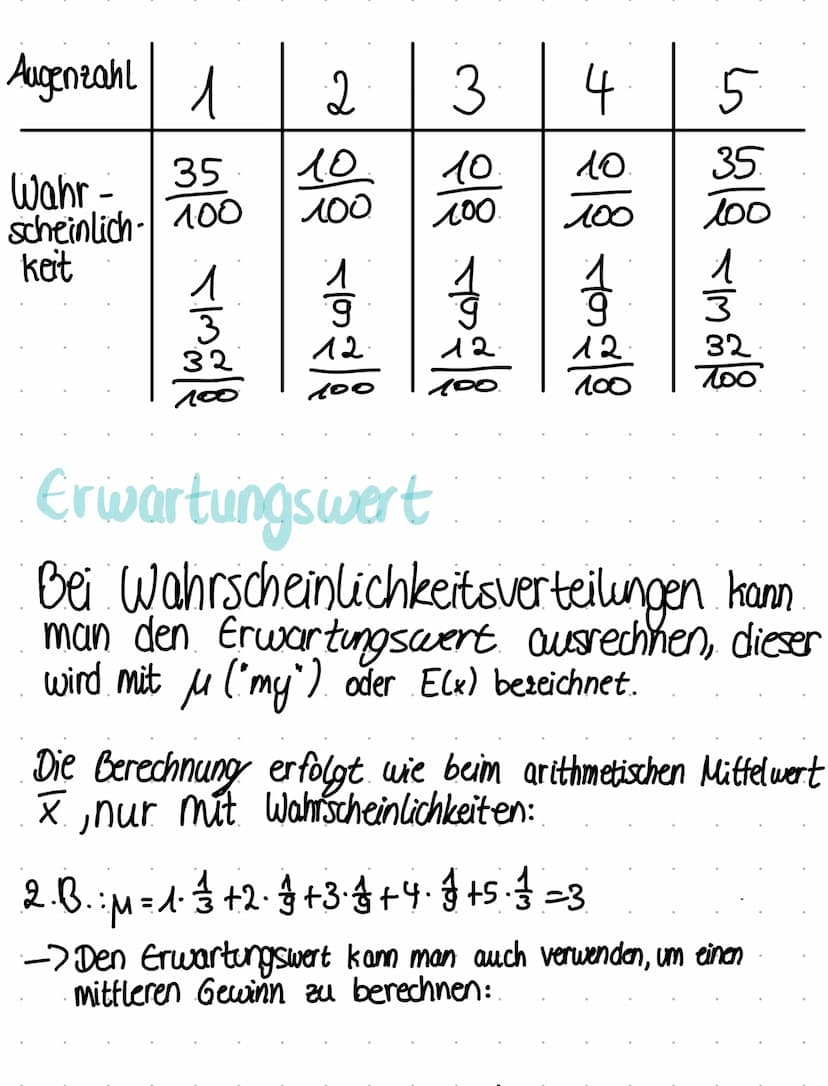 Augenzahl 1 2 3 4 5
Wahr- 35/100 10/100 10/100 10/100 35/100
scheinlich-
keit 1/3 1/9 1/9 1/9 1/3
32/100 12/100 12/100 12/100 32/100
Erwartungswert
Bei Wahrscheinlichkeitsverteilungen kann
man den Erwartungswert ausrechnen, dieser
wird mit μ ("my") oder E(x) bezeichnet.
Die Berechnung erfolgt wie beim arithmetischen Mittelwert
x̅, nur mit Wahrscheinlichkeiten:
z.B.: μ = 1·1/3 + 2·1/9 + 3·1/9 + 4·1/9 + 5·1/3 = 3
—> Den Erwartungswert kann man auch verwenden, um einen
mittleren Gewinn zu berechnen: